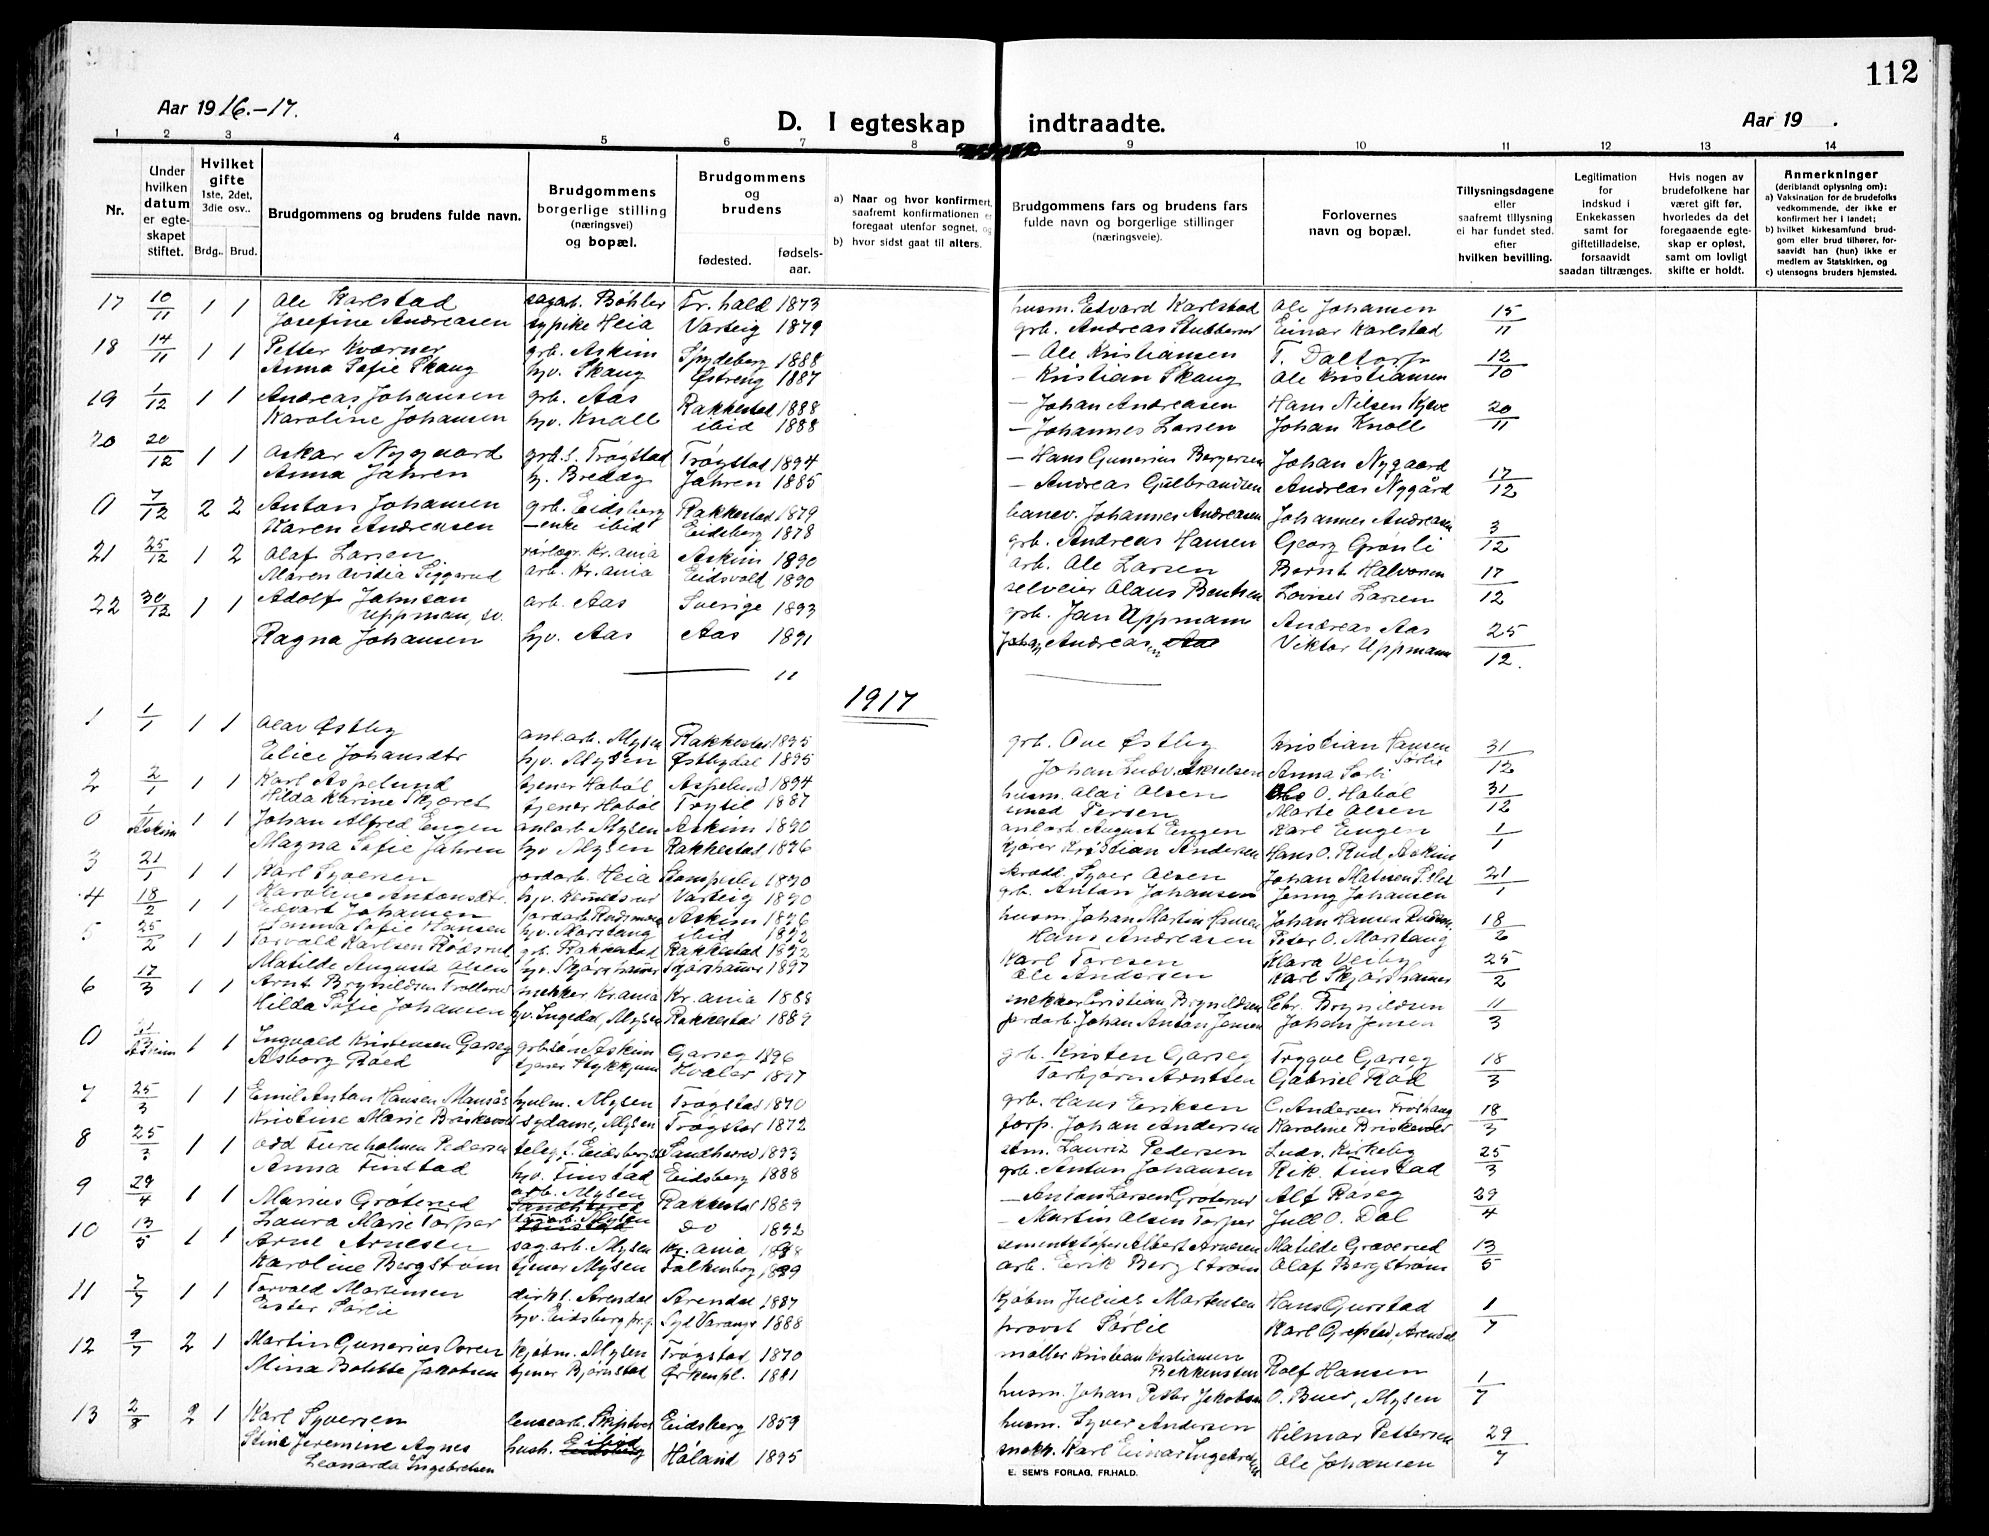 112
Aar 1916.-17.
D. I egteskap indtraadte.
Aar 19 .
1 2 3 4 5 6 7 8 9 10 11 12 13 14
Nr.
Under hvilken datum er egteskapet stiftet.
Hvilket gifte 1ste, 2det, 3die osv..
Brdg.. Brud.
Brudgommens og brudens fulde navn.
Brudgommens borgerlige stilling (næringsvei) og bopæl.
Brudgommens og brudens
fødested. fødselsaar.
a) Naar og hvor konfirmert, saafremt konfirmationen er foregaat utenfor sognet, og
b) hvor sidst gaat til alters.
Brudgommens fars og brudens fars fulde navn og borgerlige stillinger (næringsveie).
Forlovernes navn og bopæl.
Tillysningsdagene eller saafremt tillysning ei har fundet sted. efter hvilken bevilling.
Legitimation for indskud i Enkekassen samt for giftetilladelse, forsaavidt saadan tiltrænges.
Hvis nogen av brudefolkene har været gift før, hvorledes da det foregaaende egteskap er opløst, samt om lovligt skifte er holdt.
Anmerkninger (deriblandt oplysning om):
a) Vaksination for de brudefolks vedkommende, der ikke er konfirmert her i landet;
b) hvilket kirkesamfund brudgom eller brud tilhører, forsaavidt han (hun) ikke er medlem av Statskirken, og
c) utensogns bruders hjemsted.
17 10/11 1 1 Ole Karlstad sagarb. Bøhler Fr.hald 1873 husm. Edvard Karlstad Ole Johansen 15/11
Josefine Andreasen sypike Heia Varteig 1879 grb. Andreas Stubberud Einar Karlstad
18 14/11 1 1 Petter Kværner grb. Askim Spydeberg 1888 – Ole Kristiansen T. Daltorp 12/10
Anna Sofie Skaug hjv. Skaug Østreng 1887 – Kristian Skaug Ole Kristiansen
19 1/12 1 1 Andreas Johansen grb. Aas Rakkestad 1888 – Johan Andreasen Hans Nilsen 20/11
Karoline Johansen hjv. Knoll ibid 1888 – Johannes Larsen Johan Knoll
20 20/12 1 1 Oskar Nygaard grb.s. Trøgstad Trøgstad 1894 – Hans Gunerius Bergersen Johan Nygaard 17/12
Anna Jahren hj. Bredog Jahren 1885 – Andreas Gulbrandsen Andreas Nygård
0 7/12 2 2 Anton Johansen grb. Eidsberg Rakkestad 1879 banev. Johannes Andreasen Johannes Andreasen 3/12
Karen Andreasen – enke ibid Eidsberg 1878 grb. Andreas Hansen Georg Grønli
21 25/12 1 2 Olaf Larsen rørlegr. Kr.ania Askim 1890 arb. Ole Larsen Bernt Halvorsen 17/12
Maren Ovidia Siggerud arb. Kr.ania Eidsvold 1890 selveier Olaus Bentsen Lovise Larsen
22 30/12 1 1 Adolf Johnson arb. Aas Sverige 1893 grb. Jan Uppmann Andreas Aas 25/12.
Uppman, sv.
Ragna Johansen hjv. Aas Aas 1891 Johan Andreasen Viktor Uppmann
11
1917
1 1/1 1 1 Olav Østby anl.arb. Mysen Rakkestad 1895 grb. Ove Østby Kristian Hansen Sørlie 31/12
Elice Johansdtr hjv. Mysen Østbydal 1895 Johan Ludv. Akselsen Anna Sørli
2 2/1 1 1 Karl Aspelund tjener Hobøl Aspelund 1894 husm. Olai Olsen O. Hobøl 31/12
Hilda Karine Skjøret tjener Hobøl Trysil 1887 smed Persen Marte Olsen
0 1/1 Askim 1 1 Johan Alfred Engen anl.arb. Mysen Askim 1890 anl.arb. August Engen Karl Engen 1/1
Magna Sofie Jahren hjv Mysen Rakkestad 1896 kjører Kristian Andersen Hans O. Rud, Askim
3 21/1 1 1 Karl Syversen jordarb. Heia 1890 Syver Olsen Johan 21/1
Karoline Antonsdtr. hjv. Varteig 1890 grb. Anton Johansen Jenny Johansen
4 18/2 1 1 Edvart Johansen jordarb. Askim 1896 husm. Johan Martin Hansen Johan Hansen 18/2
Sofie Hansen hjv. Morstang ibid 1892 Hans Andreasen Peter O. Morstang
5 25/2 1 1 Torvald Karlsen Rødsrud grb. Rakkestad Rakkestad 1892 Karl Toresen Klara Veiby 25/2
Matilde Augusta Olsen hjv. Skjørshamer Skjørshamer 1897 Ole Andersen Karl Skjørshamer
6 17/3 1 1 Arnt Brynildsen Trollerud snekker Kr.ania Kr.ania 1888 snekker Kristian Brynildsen Chr. Brynildsen 11/3
Hilda Sofie Johansen hjv. Ingedal, Mysen Rakkestad 1889 jordarb. Johan Anton Jensen Johan Jensen
0 Askim 1 1 Ingvald Kristensen Garseg grb.søn Askim Garseg 1896 grb. Kristen Garseg Tryggve Garseg 18/3
Asborg Røed tjener Hvaler 1897 Torbjørn Arntsen Gabriel Rød
7 25/3 1 1 Emil Anton Hansen Monsås hjulm. Mysen Trøgstad 1870 grb. Hans Eriksen C. Andersen Froshaug 18/3
Kristine Marie Briskevold sydame, Mysen Trøgstad 1872 torp. Johan Andersen Karoline Briskevold
8 25/3 1 1 Odd Turnholmen Pedersen telegf. Eidsberg st Sandherred 1893 stm. Lauriz Pedersen Ludv. Kirkeby 25/3
Anna Finstad hjv. Finstad Eidsberg 1888 grb. Anton Johansen Rik. Finstad
9 29/4 1 1 Marius Grøterud arb. Mysen Rakkestad 1889 – Anton Larsen Grøterud Alf Råseg 29/4
Laura Marie Torper Mysen do 1892 – Martin Olsen Torper Jull O. Dal
10 13/5 1 1 Arne Arnesen sagarb. Mysen Kr.ania sementstøper Albert Arnesen Matilde Grøverud 13/5
Karoline Bergstrøm tjener Mysen Falkenberg arb. Erik Bergstrøm Olaf Bergstrøm
11 7/7 1 1 Torvald Mortensen dirkt. Arendal Arendal 1887 kjøbm Julius Mortensen Hans Gurstad 1/7
Ester Sørlie hjv. Eidsberg pr.g. Syd Varanger 1888 provst Sørlie Karl Grefstad, Arendal
12 9/7 2 1 Martin Gunerius Ovren kjøbm. Mysen Trøgstad, 1870 møller Kristian Kristiansen Bekkensten Rolf Hansen 1/7
Mina Bolette Jakobsen tjener Bjørnstad Ørkenpl. 1881 husm. Johan Peter Jakobsen O. Buer, Mysen
13 2/8 2 1 Karl Syversen lensearb. Skiptvet Eidsberg 1859 husm. Syver Andersen Hilmar Pettersen 29/7
Stine Jeremine Agnes hush. ibid Høland 1895 snekk. Karl Einar Ingebretsen Ole Johansen
Leonarda Ingebretsen
E. SEM'S FORLAG, FR.HALD.